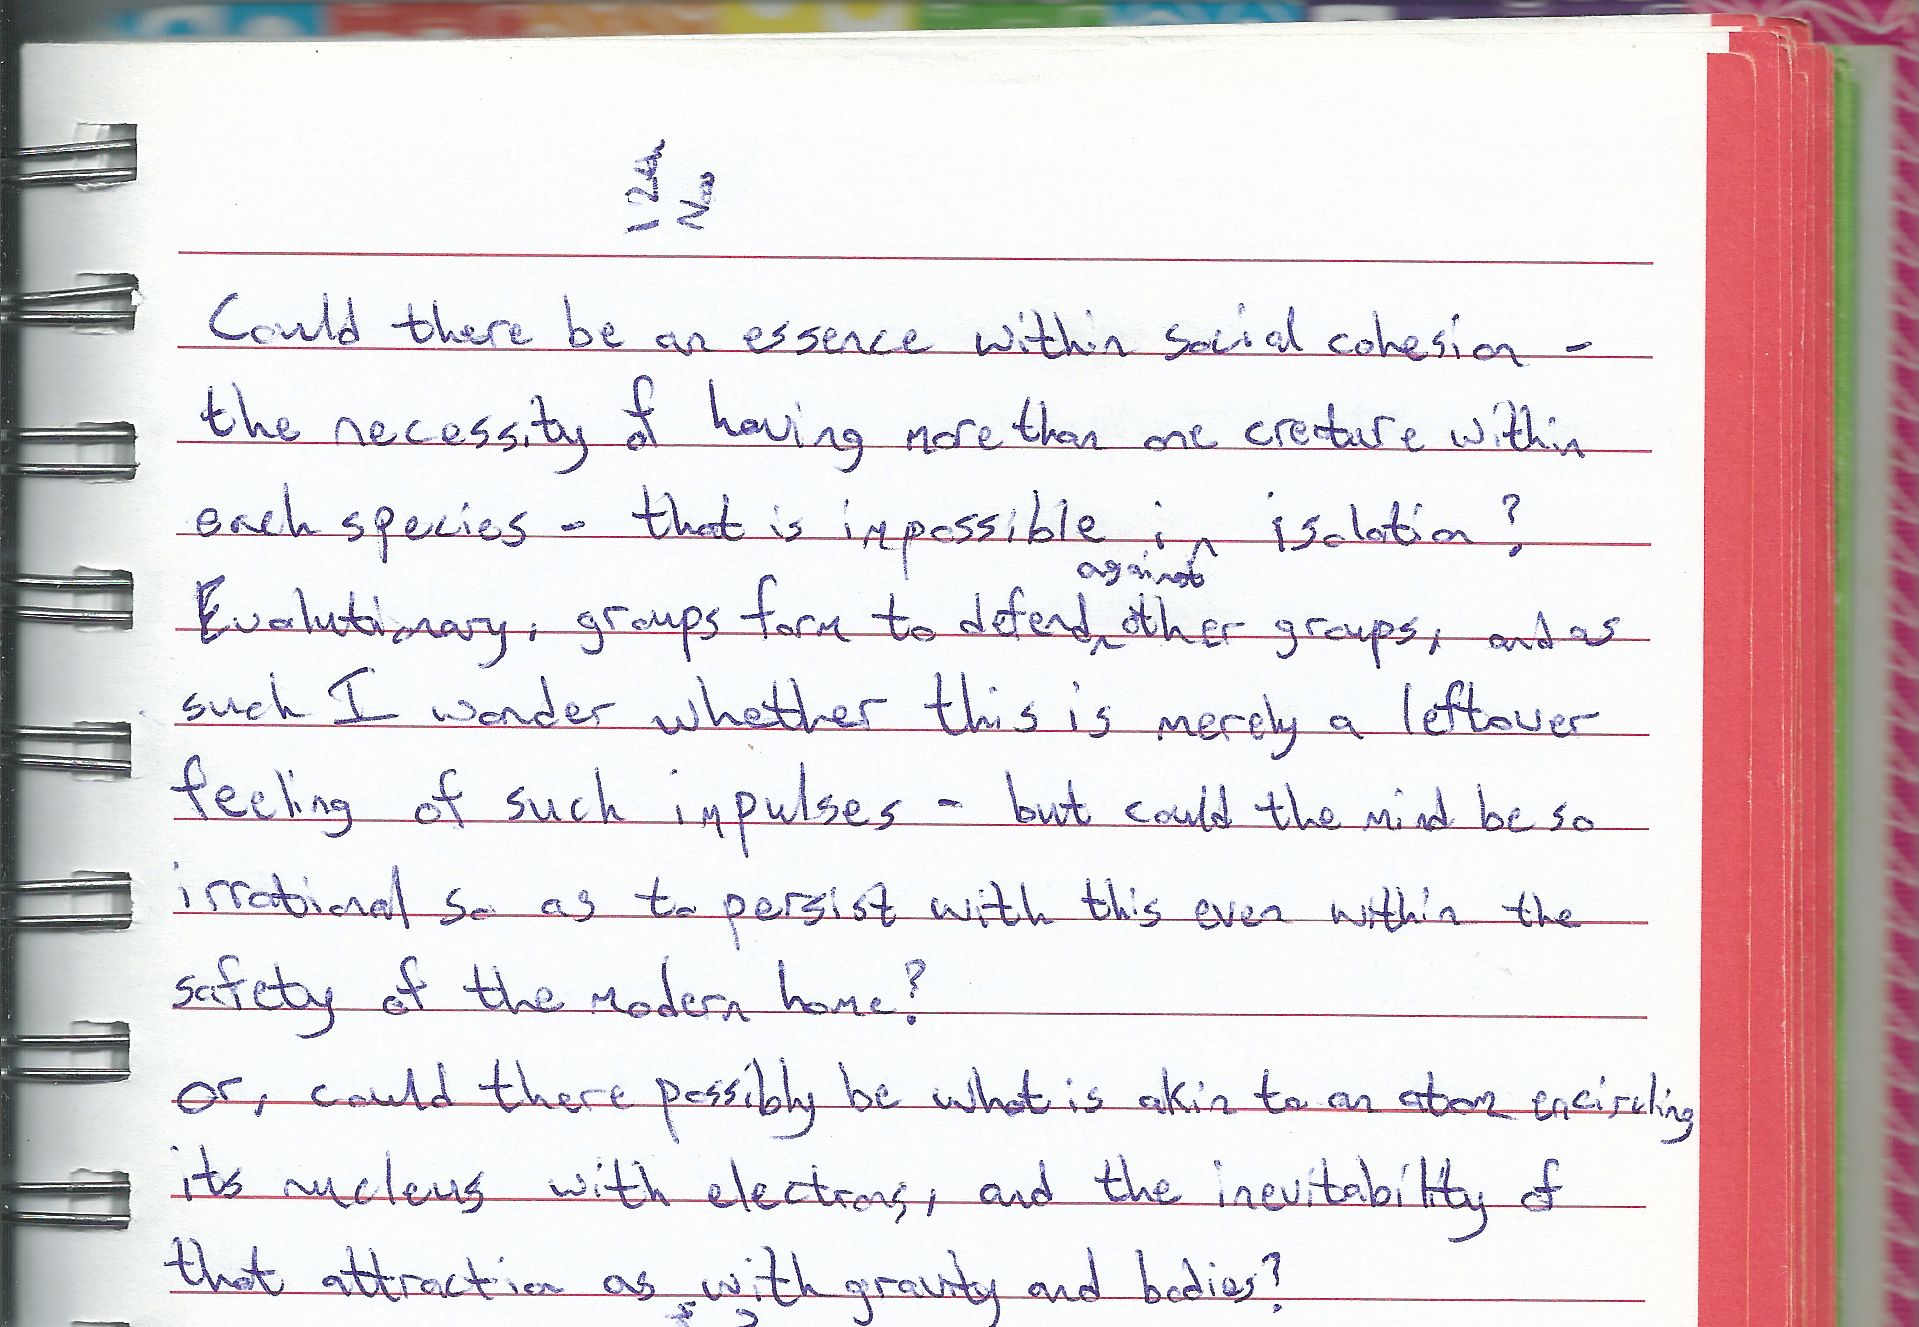 12th
Nov
Could there be an essence within social cohesion -
the necessity of having more than one creature within
each species - that is impossible in isolation?
against
Evolutionary, groups form to defend other groups, and as
such I wonder whether this is merely a leftover
feeling of such impulses - but could the mind be so
irrational so as to persist with this even within the
safety of the modern home?
or, could there possibly be what is akin to an atom encircling
its nucleus with electrons, and the inevitability of
that attraction as with gravity and bodies?